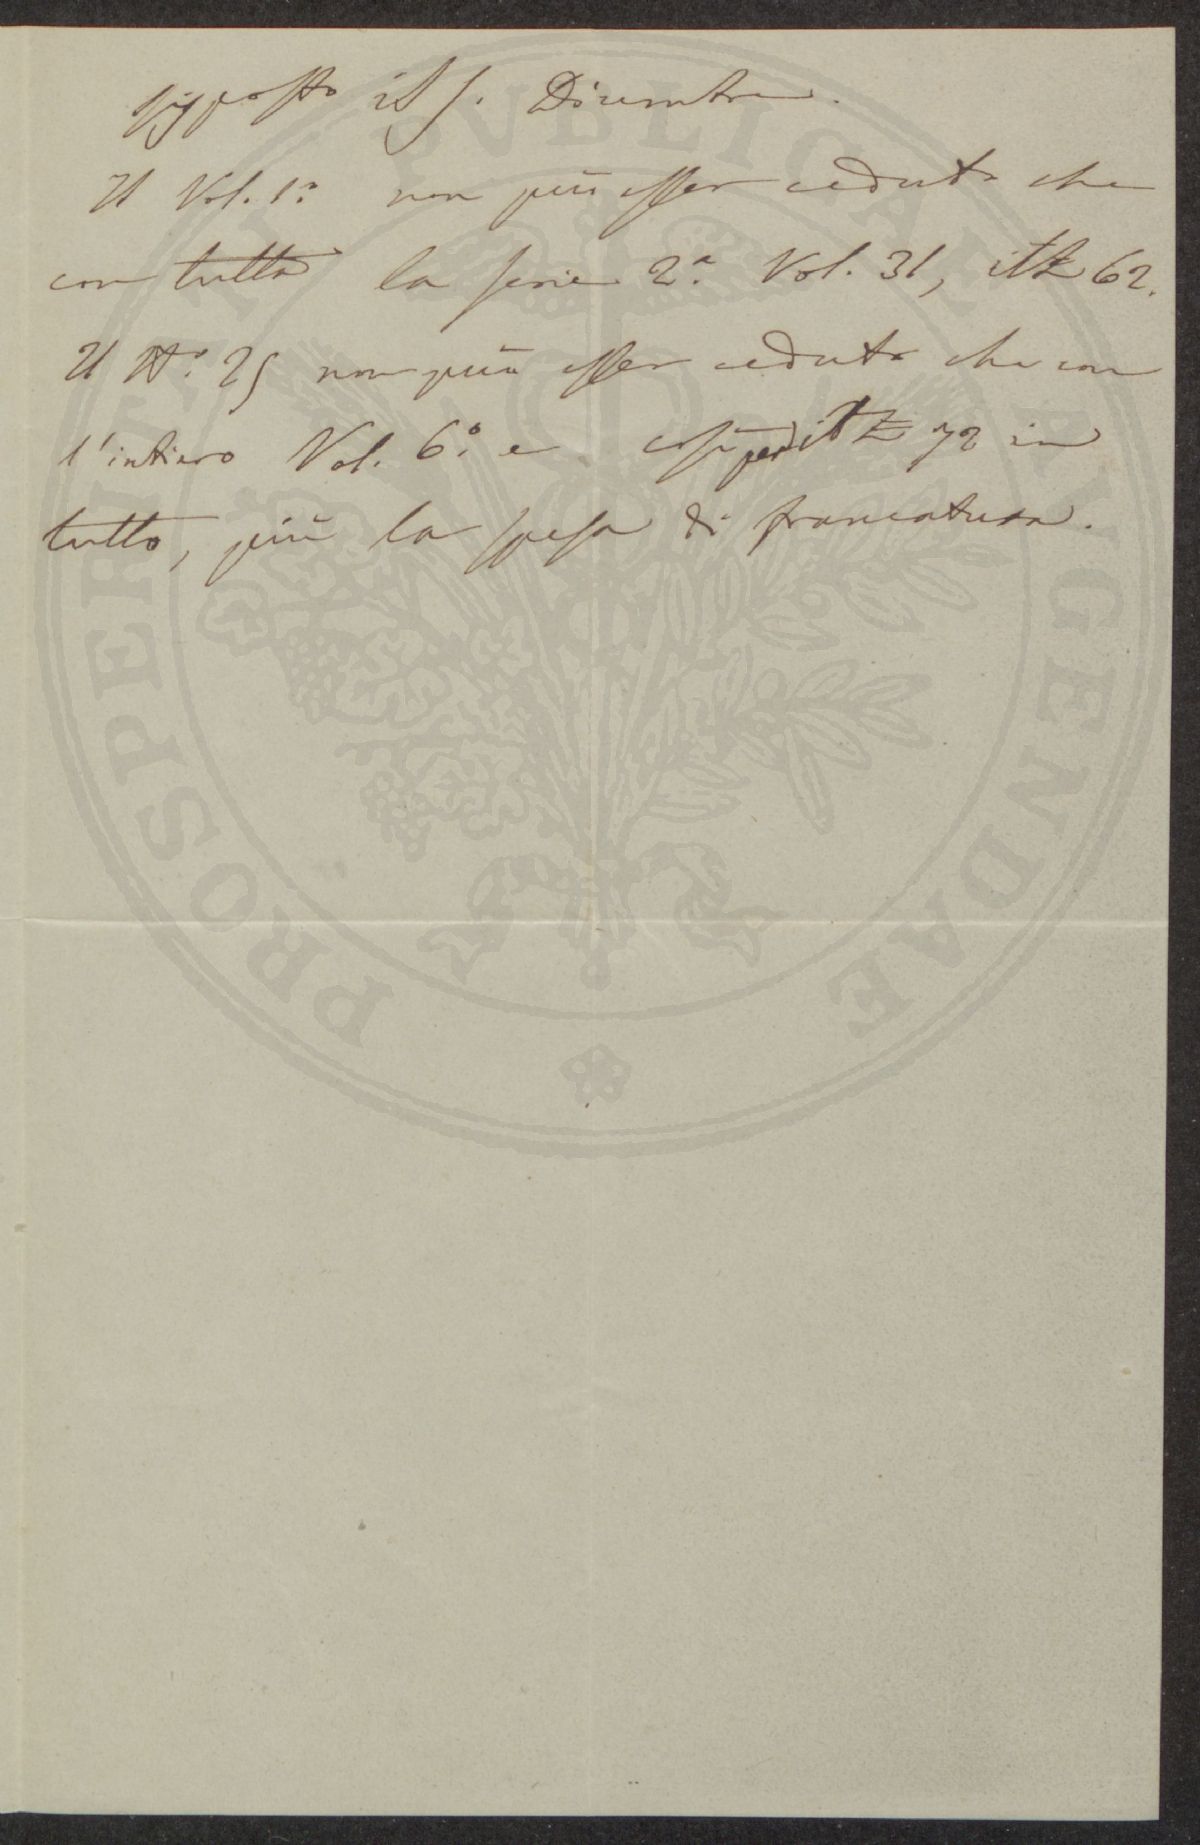 Risposto il 5. Dicembre.
Il Vol. 1.° non può esser ceduto che
con tutta la serie 2.ª Vol. 31, it£ 62.
Il N.° 25 non può esser ceduto che con
l'intiero Vol. 6.° e così per it£ 72 in
tutto, più la spesa di francatura.
PROSPERITATI PVBLICAE AVGENDAE